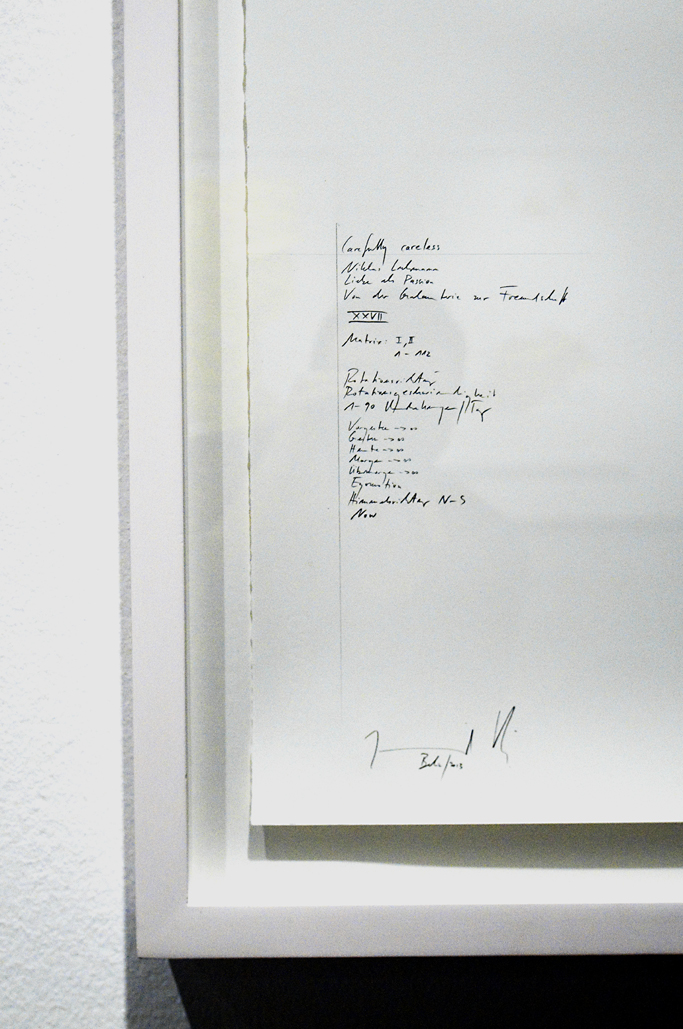 Carefully careless
Niklas Luhmann
Liebe als Passion
Von der Galanterie zur Freundschaft
XXVII
Matrix: I, II
1 - 112
Rotationsrichtung
Rotationsgeschwindigkeit
1-90 Umdrehungen/Tag
Vorgestern -> ∞
Gestern -> ∞
Heute -> ∞
Morgen -> ∞
Übermorgen -> ∞
Egomotion
Himmelsrichtung N-S
Now